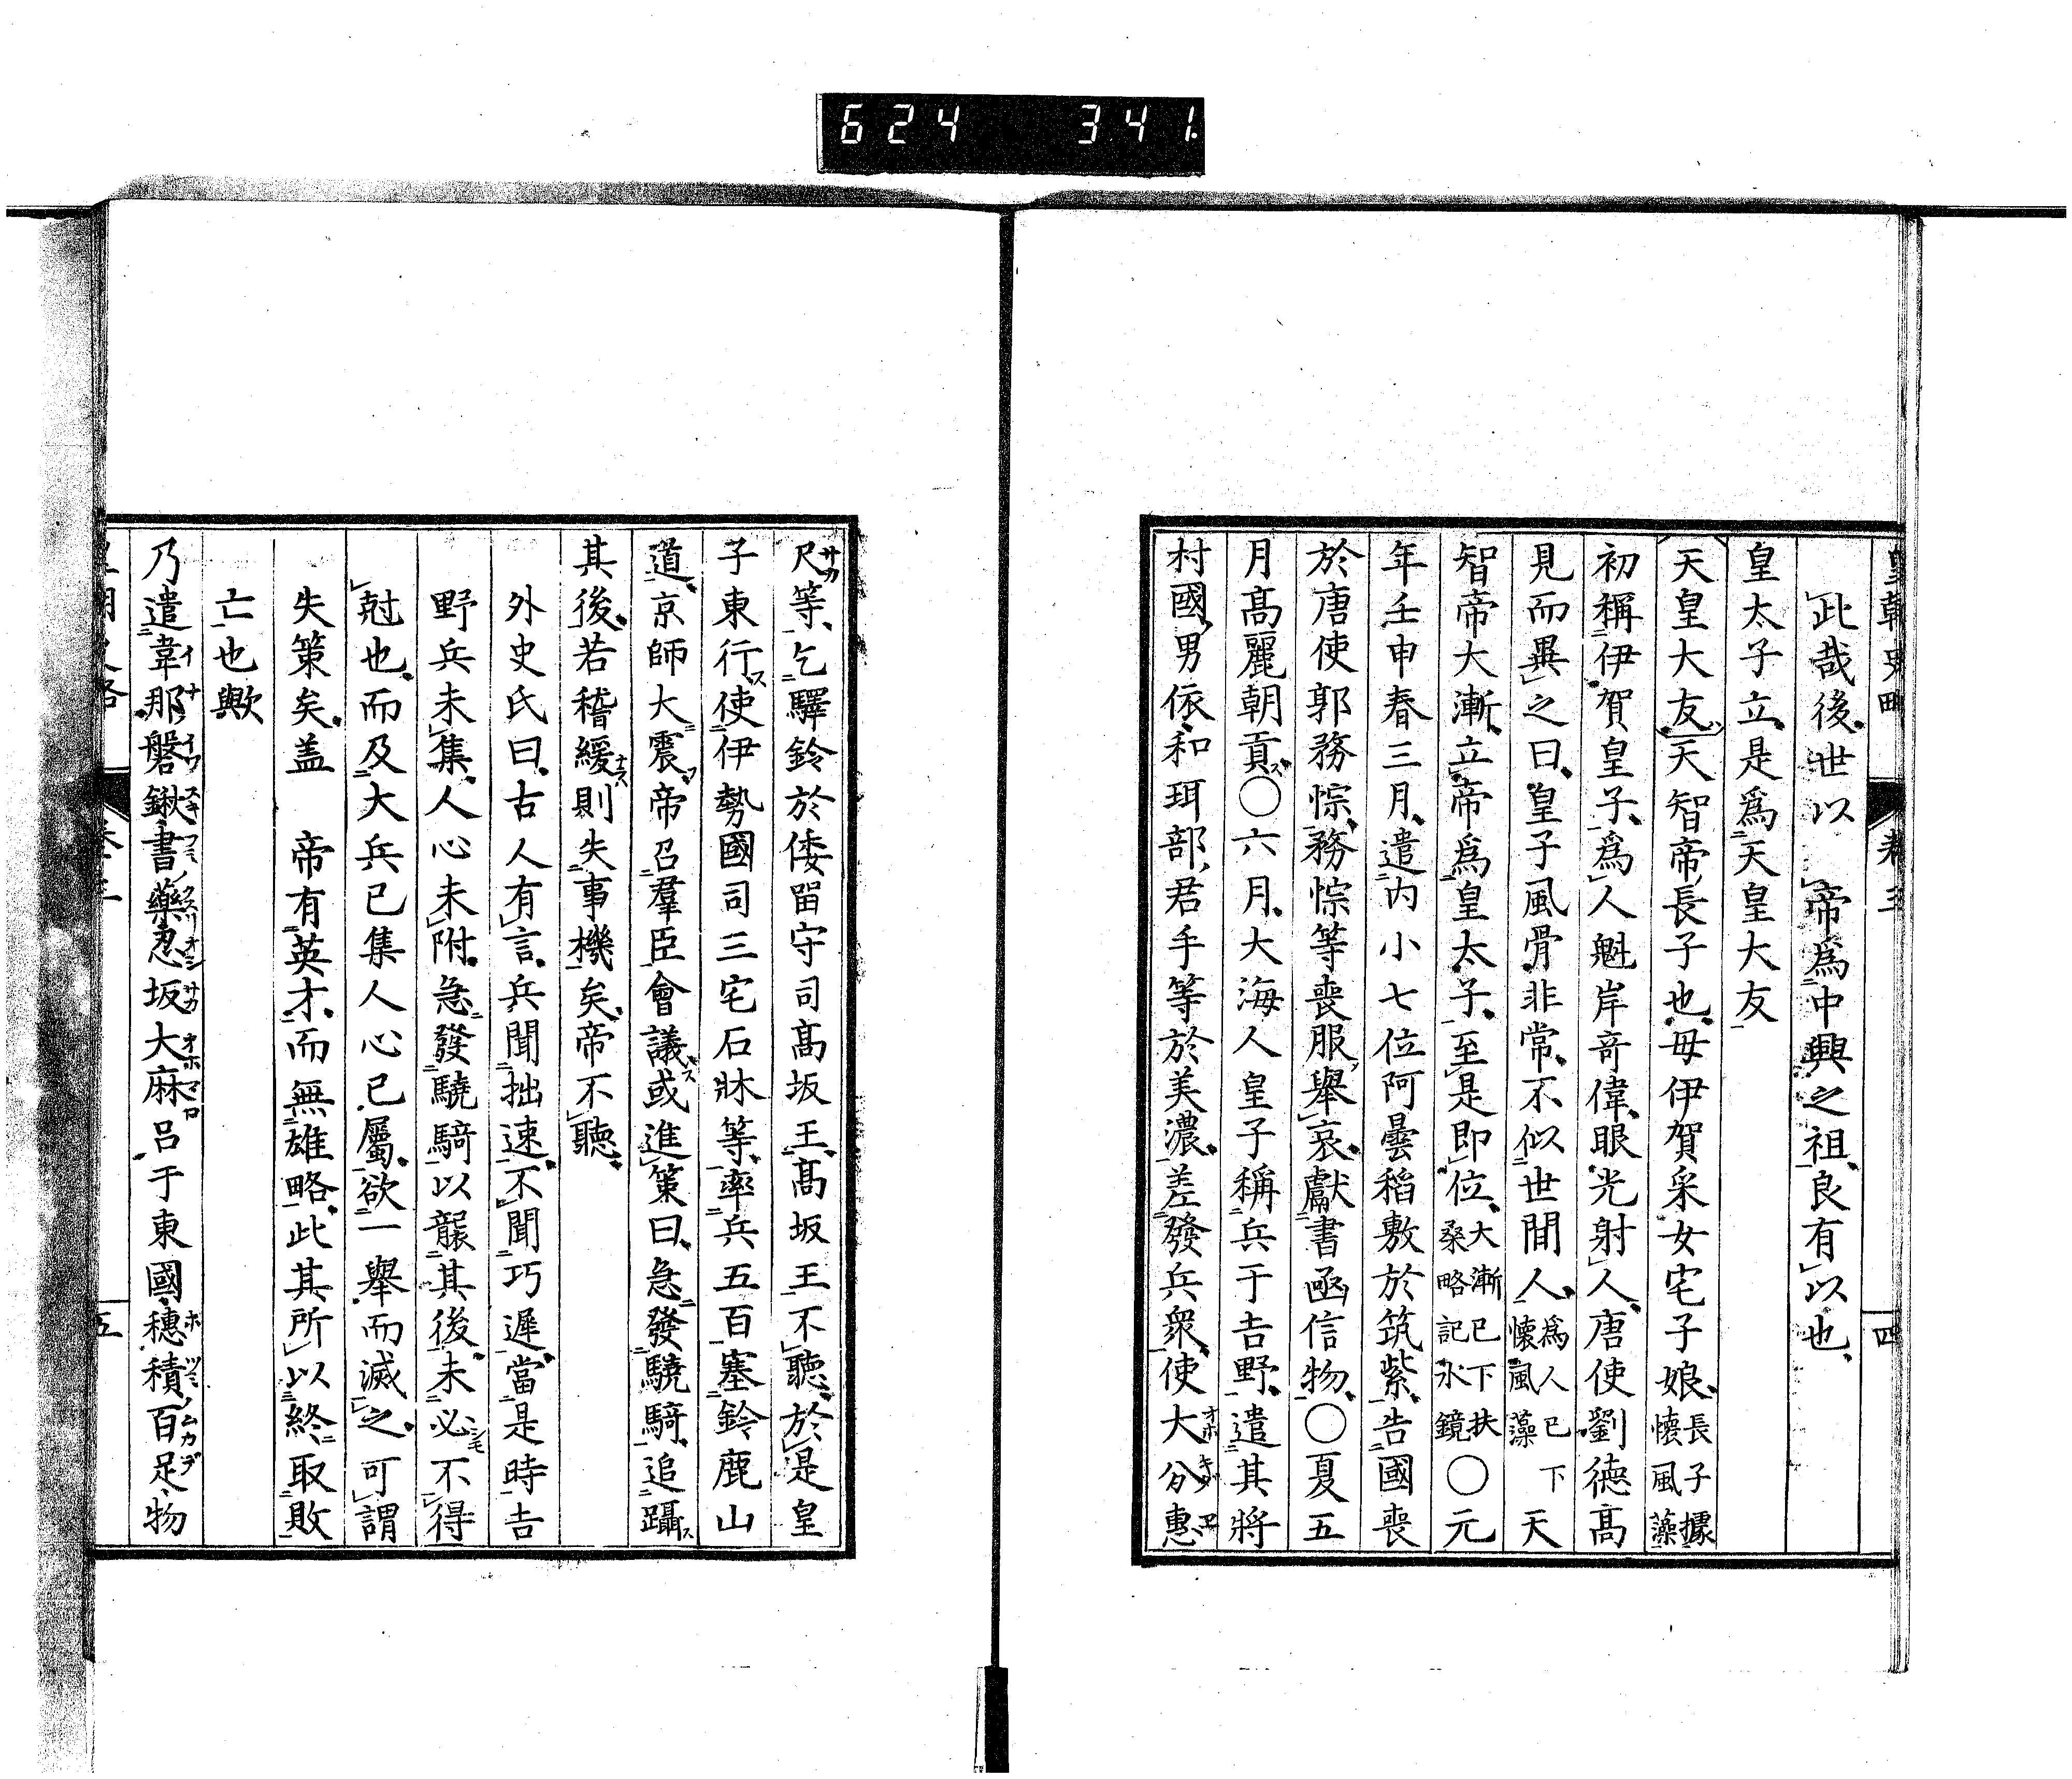 624 341.
皇朝史略 卷三 四
此哉後世以 帝爲中興之祖良有以也
皇太子立是爲天皇大友
天皇大友天智帝長子也母伊賀采女宅子娘長子據懷風藻
初稱伊賀皇子爲人魁岸奇偉眼光射人唐使劉德高
見而異之曰皇子風骨非常不似世間人爲人已下懷風藻天
智帝大漸立帝爲皇太子至是即位大漸已下扶桑略記水鏡〇元
年壬申春三月遣内小七位阿曇稻敷於筑紫告國喪
於唐使郭務悰務悰等喪服舉哀獻書函信物〇夏五
月高麗朝貢〇六月大海人皇子稱兵于吉野遣其將
村國男依和珥部君手等於美濃差發兵衆使大分惠
尺等乞驛鈴於倭留守司高坂王高坂王不聽於是皇
子東行使伊勢國司三宅石牀等率兵五百塞鈴鹿山
道京師大震帝召羣臣會議或進策曰急發驍騎追躡
其後若稽緩則失事機矣帝不聽
外史氏曰古人有言兵聞拙速不聞巧遲當是時吉
野兵未集人心未附急發驍騎以襲其後未必不得
尅也而及大兵已集人心已屬欲一舉而滅之可謂
失策矣蓋 帝有英才而無雄略此其所以終取敗
亡也歟
乃遣韋那磐鍬書藥忍坂大麻呂于東國穗積百足物